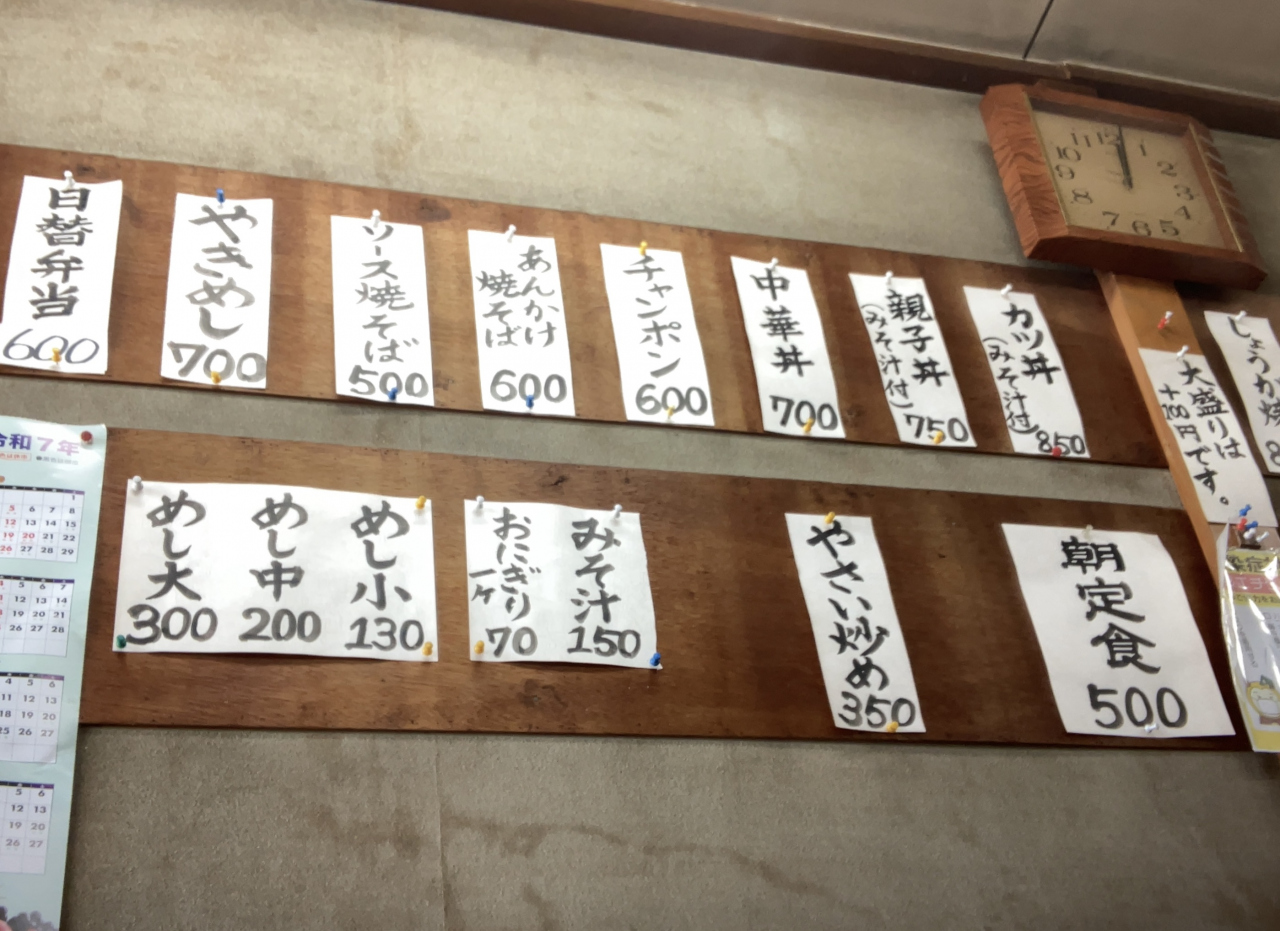 日替弁当
600
やきめし
700
ソース焼そば
500
あんかけ
焼そば
600
チャンポン
600
中華丼
700
親子丼
(みそ汁付)
750
カツ丼
(みそ汁付)
850
大盛りは
+200円です。
しょうが焼
令和7年
めし大
300
めし中
200
めし小
130
おにぎり
一ヶ
70
みそ汁
150
やさい炒め
350
朝定食
500
12
1
2
3
4
5
6
7
8
9
10
11